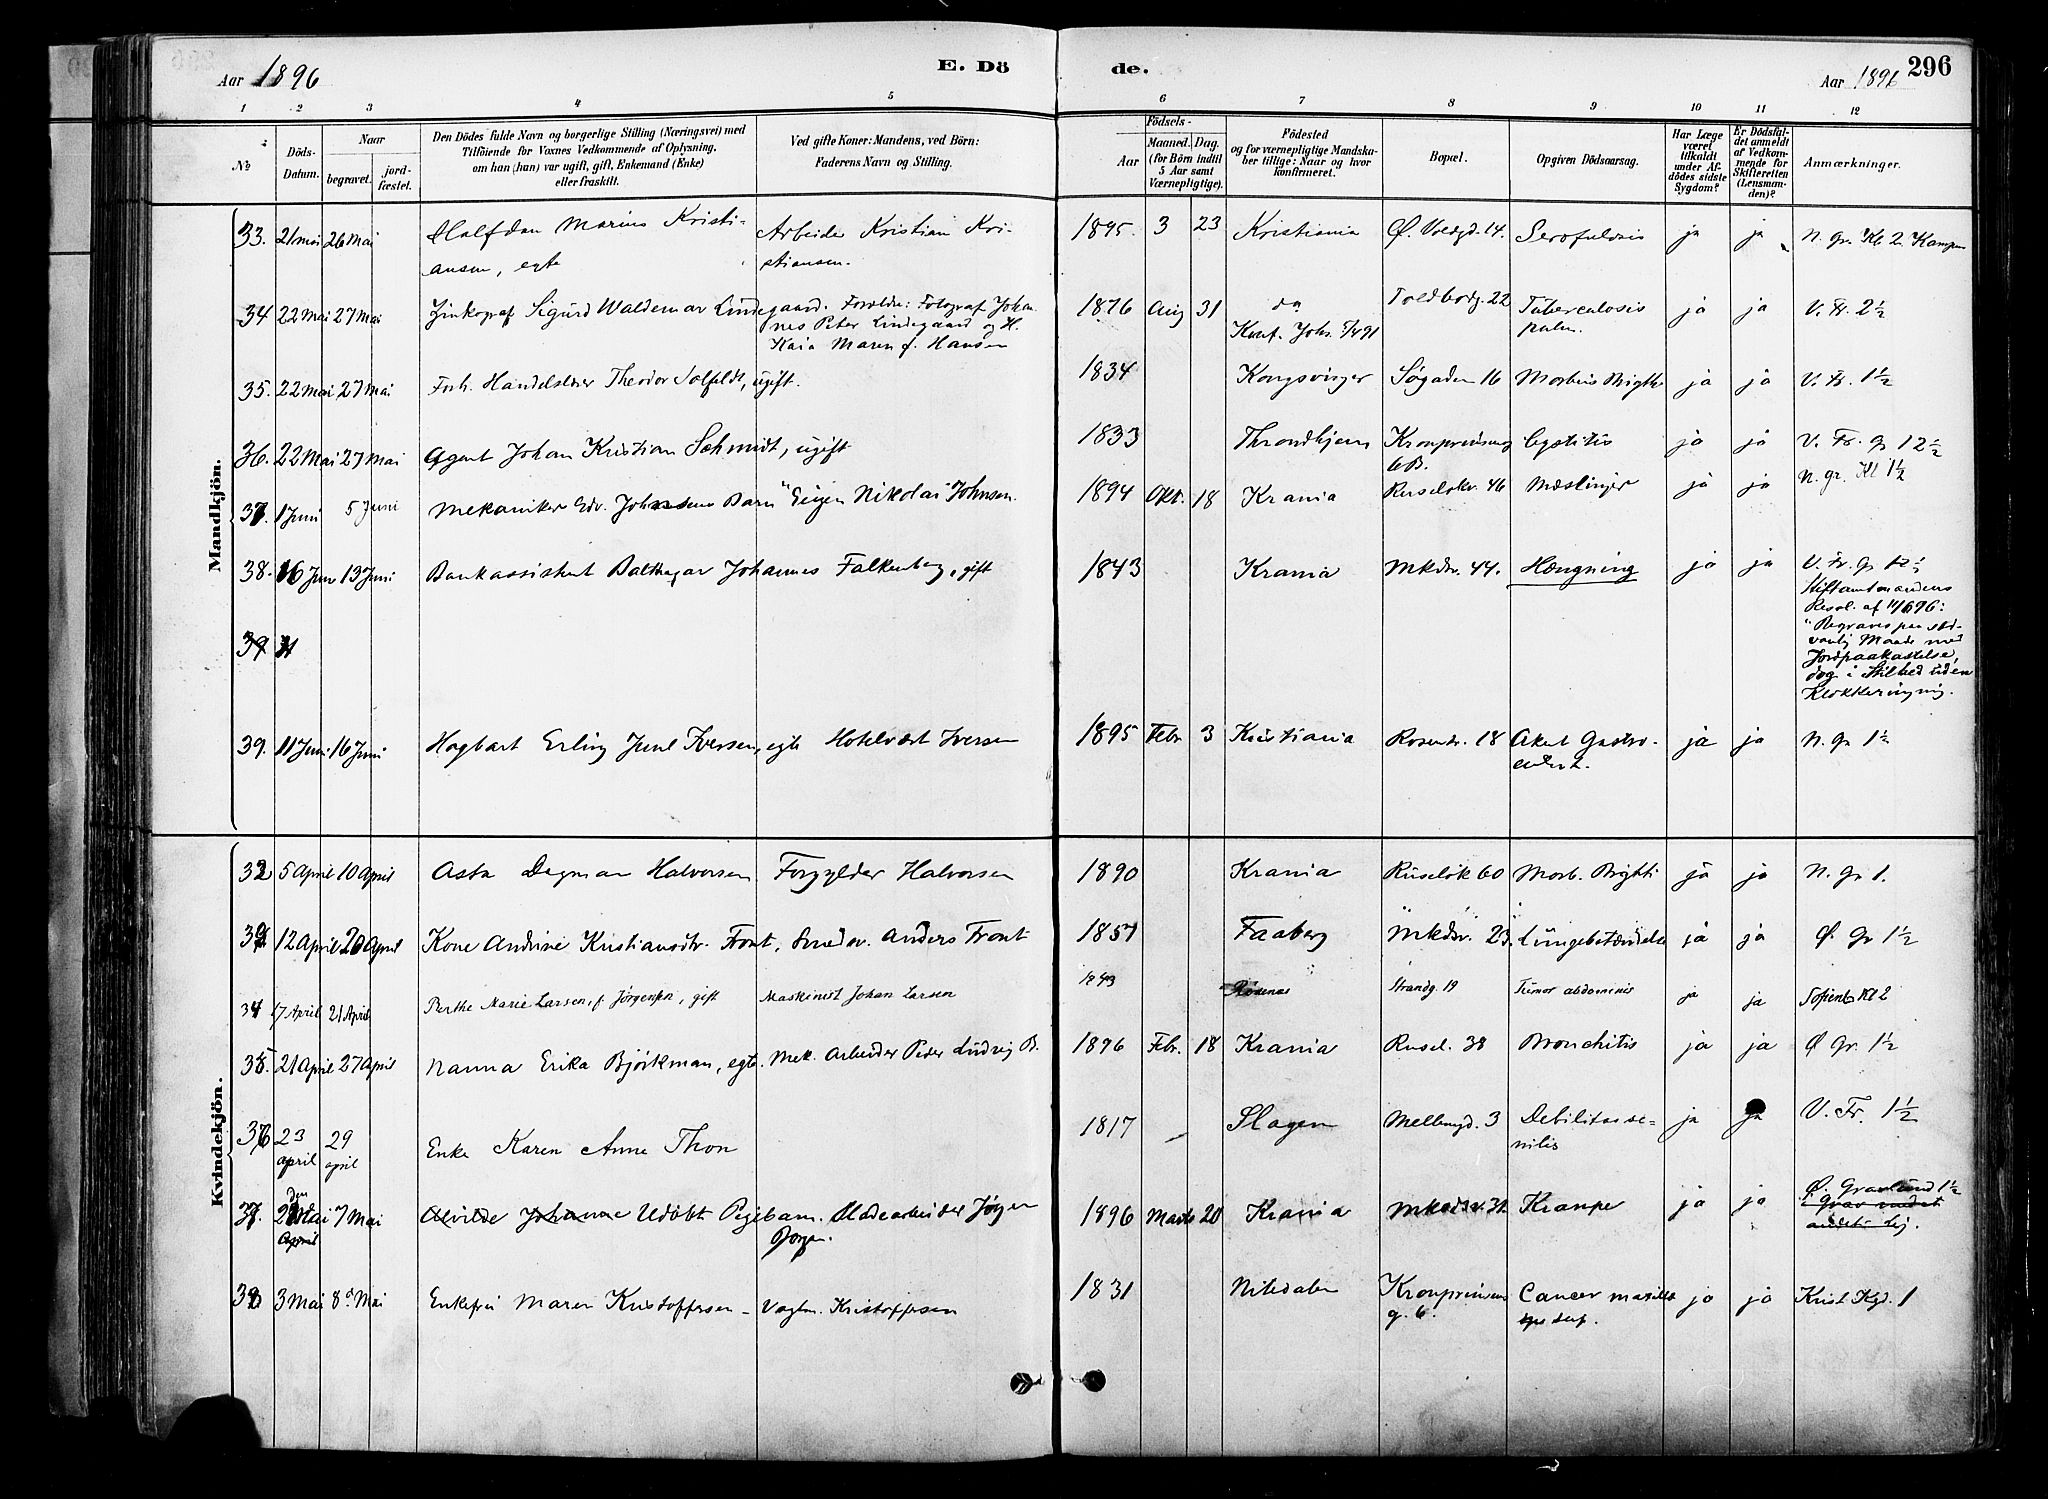 Aar 1896
E. Dö
de.
Aar 1896
296
1 2 3 4 5 6 7 8 9 10 11 12
No
Döds-
Datum.
Naar
begravet.
jord-
fæstet.
Den Dödes fulde Navn og borgerlige Stilling (Næringsvei) med
Tilföiende for Voxnes Vedkommende af Oplysning,
om han (hun) var ugift, gift, Enkemand (Enke)
eller fraskilt.
Ved gifte Koner: Mandens, ved Börn:
Faderens Navn og Stilling.
Födsels-
Aar
Maaned.
Dag.
(for Börn indtil
5 Aar samt
Værnepligtige).
Födested
og for værnepligtige Mandska-
ber tillige: Naar og hvor
konfirmeret.
Bopæl.
Opgiven Dödsaarsag.
Har Læge
været
tilkaldt
under Af-
dödes sidste
Sygdom?
Er Dödsfal-
det anmeldt
af Vedkom-
mende for
Skifteretten
(Lensman-
den)?
Anmærkninger.
Mandkjön.
33. 21 mai 26 Mai Halfdan Marius Kristi- Arbeider Kristian Kri- 1895. 3 23 Kristiania Ø. Voldgd. 14. Scrofulosis ja ja N. Gr. Kl 2 Kampen
ansen, egte stiansen.
34 22 Mai 27 Mai Zinkograf Sigurd Waldemar Lindegaard. Forældre: Fotograf Johan- 1876 Aug 31 do Toldbodg. 22 Tuberculosis ja ja V. Fr. 2½
nes Peter Lindegaard og H. Konf. Johs. 5/4 91 pulm.
Kaia Maren f. Hansen
35. 22 Mai 27 Mai Forh. Handelsbor Theodor Solfeldt, ugift. 1834 Kongsvinger Søgaden 16 Morbus Brigth. ja ja V. Fr. 1½
36. 22 Mai 27 Mai Agent Johan Kristian Schmidt, ugift 1833 Throndhjem Kronprinsensg Cystitis ja ja V. Fr. Gr 1 2½
6B.
37. 1 Juni 5 Juni Mekaniker Edv. Johnsens Barn "Eugen Nikolai" Johnsen. 1894 Okt. 18 Krania Ruseløkv. 46 Mæslinger ja ja N. gr. Kl 1½
38. 6 Juni 13 Juni Bankassistent Balthazar Johannes Falkenberg, gift 1843 Krania Mkdsv. 44. Hængning ja ja V. Fr. Gr 1½
Stiftamtmandens
Resol. af 11/6 96:
"Begraves paa sæd-
vanlig Maade med
Jordpaakastelse,
dog i Stilhed uden
Klokkeringning.
39 11
39. 11 Juni 16 Juni Hagbart Erling Juul Iversen, egte Hotelvært Iversen 1895 Febr 3 Kristiania Rosenkr. 18 Akut Gastro- ja ja N. Gr 1½
enter.
Kvindekjön.
32 5 April 10 April Asta Dagmar Halvorsen Forgylder Halvorsen 1890 Krania Ruseløk 60 Morb. Brigtii ja ja N. Gr 1.
33 12 April 20 April Kone Andrine Kristiansdtr. Front, Snedkr. Anders Front 1851 Faaberg Mkdsv. 23. Lungebetændelse ja ja Ø. Gr 1½
34 17 April 21 April Berthe Marie Larsen, f. Jørgensen, gift Maskinist Johan Larsen 1843 Strandg. 19 Tumor abdominis ja ja Sofienb. Kl 2
35. 21 April 27 April Nanna Erika Bjørkman, egte. Mek. Arbeider Peder Ludvig B. 1896 Febr. 18 Krania Rusel. 38 Bronchitis ja ja Ø Gr. 1½
36 23 april 29 april Enke Karen Anne Thon 1817 – Slagen Mellemgd. 3 Debilitas se- ja ja V. Fr. 1½
nilis
37. den 2 Mai April 7 Mai Alvilde Johanne Udøbt Pigebarn. Jørgen 1896 Marts 20 Krania Mkdsv. 31 Krampe ja ja Ø. Gravlund 1½
i Grav
38 3 Mai 8 Mai Enkefru Maren Kristoffersen – Vagtm. Kristoffersen 1831 Nitedalen Kronprinsens Cancer maxill. ja ja Krist. Kgd. 1
g. 6. sup.